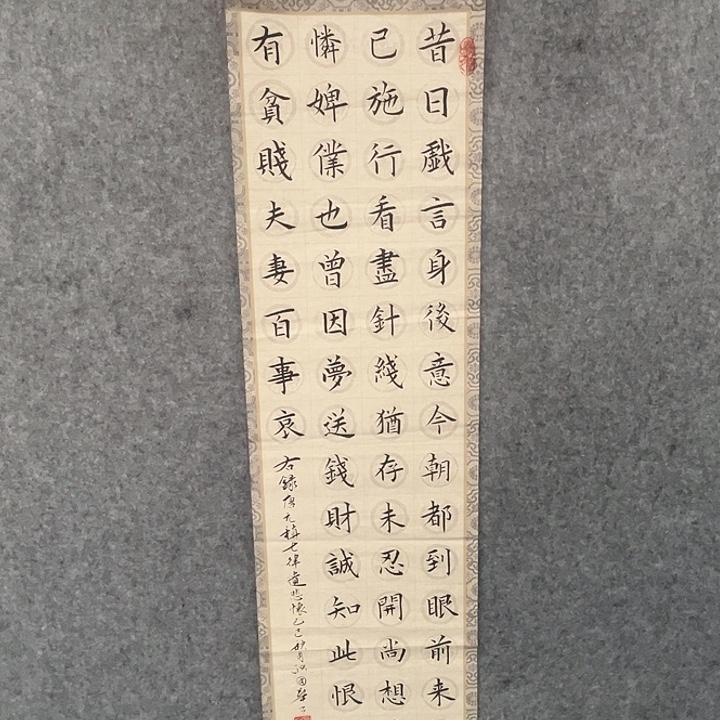 昔日戲言身後意今朝都到眼前来
已施行看盡針綫猶存未忍開尚想
憐婢僕也曾因夢送錢財誠知此恨
有貧賤夫妻百事哀
右錄唐元稹七律遣悲懷乙巳